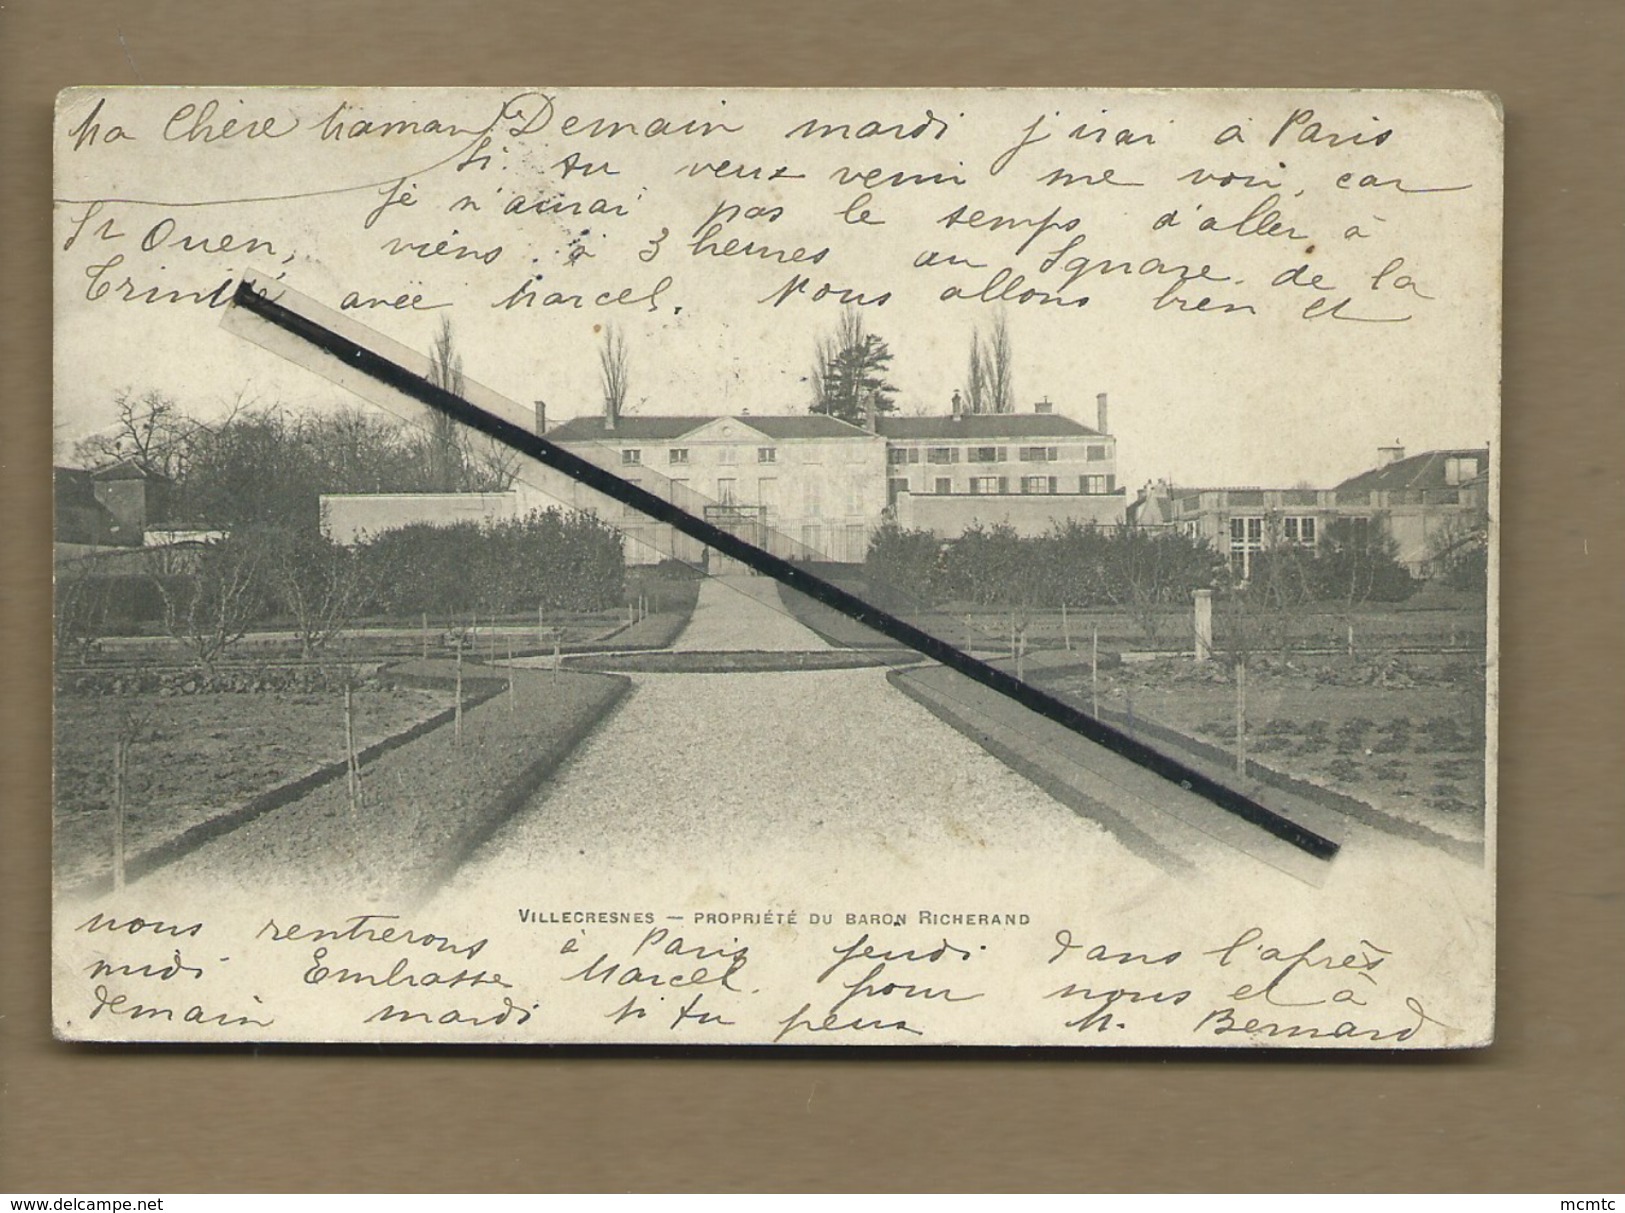 Ma Chère Maman Demain mardi j'irai à Paris
si tu veux venir me voir, car
je n'aurai pas le temps d'aller à
St Ouen, viens à 3 heures au Square de la
Trinité avec Marcel. Nous allons bien et
VILLECRESNES — PROPRIÉTÉ DU BARON RICHERAND
nous rentrerons à Paris jeudi dans l'après
midi Embrasse Marcel pour nous et à
demain mardi si tu peux M. Bernard
www.delcampe.net
mcmtc